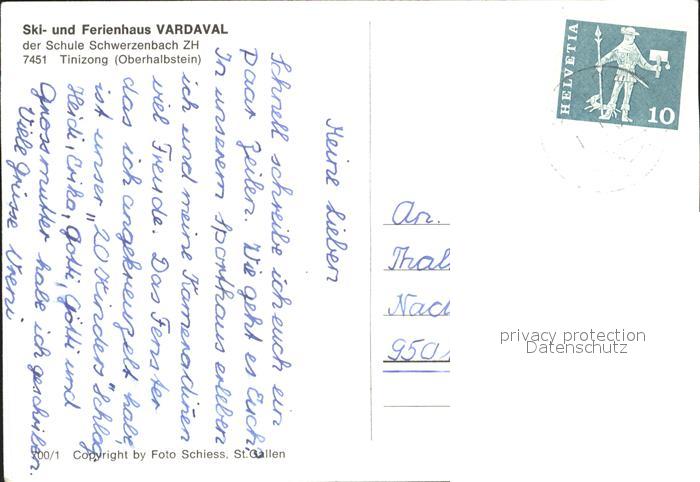 Ski- und Ferienhaus VARDAVAL
der Schule Schwerzenbach ZH
7451 Tinizong (Oberhalbstein)
Meine Lieben
Schnell schreibe ich euch ein
paar Zeilen. Wie geht es Euch?
In unserem Sporthaus erleben
ich und meine Kameradinen
viel Freude. Das Fenster
das ich angekreuzelt habe,
ist unser „20 Kinders" Schlag.
Heidi, Erika, Gotti, Götti und
Grossmutter habe ich geschrieben.
Viele Grüsse Vreni
HELVETIA
10
An.
Thal
Nad
950
privacy protection
Datenschutz
700/1 Copyright by Foto Schiess, St.Gallen